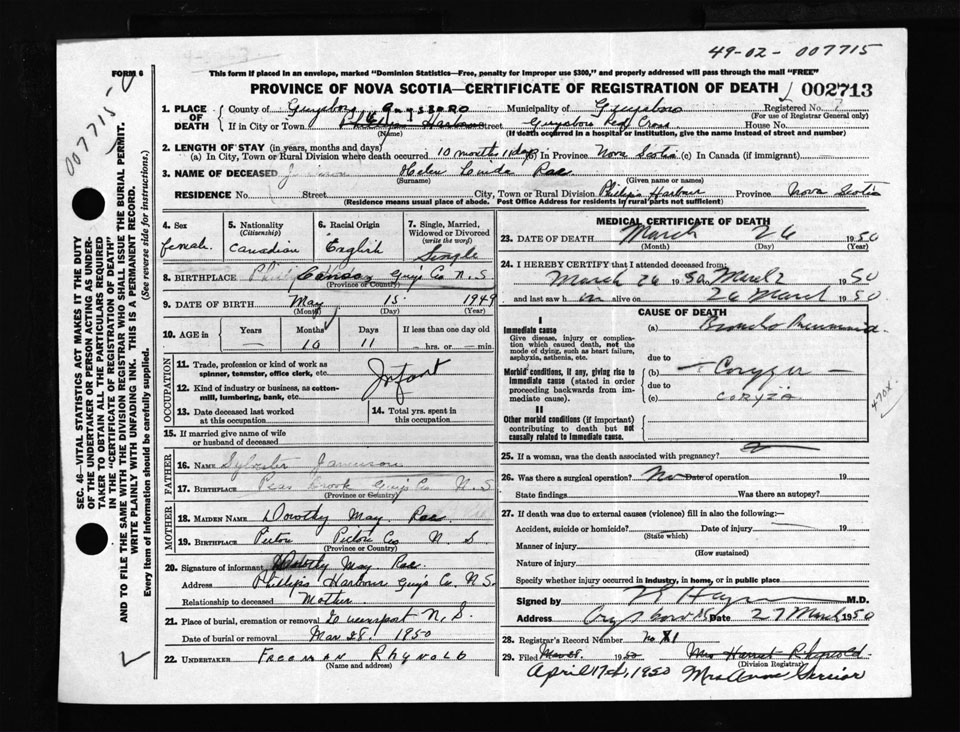 49-02- 007715
FORM 6
This form if placed in an envelope, marked "Dominion Statistics—Free, penalty for improper use $300," and properly addressed will pass through the mail "FREE"
PROVINCE OF NOVA SCOTIA—CERTIFICATE OF REGISTRATION OF DEATH 002713
007715-
SEC. 46—VITAL STATISTICS ACT MAKES IT THE DUTY OF THE UNDERTAKER OR PERSON ACTING AS UNDERTAKER TO OBTAIN ALL THE PARTICULARS REQUIRED IN THE "CERTIFICATE OF REGISTRATION OF DEATH"
AND TO FILE THE SAME WITH THE DIVISION REGISTRAR WHO SHALL ISSUE THE BURIAL PERMIT.
WRITE PLAINLY WITH UNFADING INK. THIS IS A PERMANENT RECORD.
Every item of Information should be carefully supplied. (See reverse side for instructions.)
1. PLACE OF DEATH
County of Guysboro GUYSBORO Municipality of Guysboro Registered No. 7
(For use of Registrar General only)
If in City or Town Phillips Harbour Street Guysboro Red Cross House No.
(Name) (If death occurred in a hospital or institution, give the name instead of street and number)
2. LENGTH OF STAY (in years, months and days)
(a) In City, Town or Rural Division where death occurred 10 months 11 days (b) In Province Nova Scotia (c) In Canada (if immigrant)
3. NAME OF DECEASED Helen Linda Rae
(Surname) (Given name or names)
RESIDENCE No. Street City, Town or Rural Division Phillips Harbour Province Nova Scotia
(Residence means usual place of abode. Post Office Address for residents in rural parts not sufficient)
4. Sex
female.
5. Nationality
(Citizenship)
Canadian
6. Racial Origin
English
7. Single, Married, Widowed or Divorced
(write the word)
Single
8. BIRTHPLACE Canso Guy's Co N.S
(Province or County)
9. DATE OF BIRTH May 15 1949
(Month) (Day) (Year)
10. AGE in
Years
Months
10
Days
11
If less than one day old
— hrs. or — min.
OCCUPATION
11. Trade, profession or kind of work as spinner, teamster, office clerk, etc.
Infant
12. Kind of industry or business, as cotton-mill, lumbering, bank, etc.
13. Date deceased last worked at this occupation
14. Total yrs. spent in this occupation
15. If married give name of wife or husband of deceased
FATHER
16. NAME Sylvester Jamieson
17. BIRTHPLACE Peas Brook Guy's Co. N.S
(Province or Country)
MOTHER
18. MAIDEN NAME Dorothy May Rae
19. BIRTHPLACE Pictou Pictou Co N. S
(Province or Country)
20. Signature of informant Dorothy May Rae
Address Phillips Harbour Guy's Co. N.S.
Relationship to deceased Mother
21. Place of burial, cremation or removal Queensport N.S.
Date of burial or removal Mar 28. 1950
22. UNDERTAKER FREEMAN RHYNOLD
(Name and address)
MEDICAL CERTIFICATE OF DEATH
23. DATE OF DEATH March 26 1950
(Month) (Day) (Year)
24. I HEREBY CERTIFY that I attended deceased from
March 26 1950 50
and last saw h alive on 26 March 1950
CAUSE OF DEATH
I
Immediate cause
Give disease, injury or complication which caused death, not the mode of dying, such as heart failure, asphyxia, asthenia, etc.
(a) Broncho Pneumonia
due to
Morbid conditions, if any, giving rise to immediate cause (stated in order proceeding backwards from immediate cause).
(b) Coryza
due to
(c) CORYZA
470X
II
Other morbid conditions (if important) contributing to death but not causally related to Immediate cause.
25. If a woman, was the death associated with pregnancy?
26. Was there a surgical operation? No Date of operation 19
State findings Was there an autopsy?
27. If death was due to external causes (violence) fill in also the following:—
Accident, suicide or homicide? Date of injury 19
(State which)
Manner of injury
(How sustained)
Nature of injury
Specify whether injury occurred in industry, in home, or in public place
Signed by M.D.
Address Date 27 March 1950
28. Registrar's Record Number No 1
29. Filed Mar 28. 1950 Mrs Harriet Rhynold
(Division Registrar)
April 17th, 1950 Mrs Anne